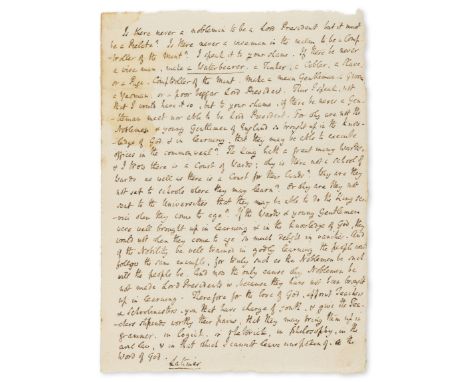 Is there never a nobleman to be a Lord President but it must
be a Prelate? Is there never a wiseman in the realm to be a Comp-
troller of the Mint? I speak it to your shame. If there be never
a wise man, make a Waterbearer, a Tinker, a Cobler, a Slave,
or a Page Comptroller of the Mint. Make a mean Gentleman, a Groom,
a Yeoman, or a poor beggar Lord President. Thus I speak, not
that I would have it so, but to your shame, if there be never a Gen-
tleman meet nor able to be Lord President. For why are not the
Noblemen & young Gentlemen of England so brought up in the Know-
ledge of God & in learning, that they may be able to execute
offices in the commonweal? The King hath a great many Wards,
& I trow there is a Court of Wards; why is there not a school of
Wards as well as there is a Court for their lands? Why are they
not set to schools where they may learn? Or why are they not
sent to the Universities that they may be able to do the King ser-
vice when they come to age? If the Wards & young Gentlemen
were well brought up in learning & in the knowledge of God, they
would not when they come to age so much delight in vanities. And
if the Nobility be well trained in godly learning the people would
follow the same example, for truly such as the Noblemen be such
will the people be. And now the only cause why Noblemen be
not made Lord Presidents is, because they have not been brought
up in learning. Therefore for the love of God, appoint Teachers
& Schoolmasters, you that have charge of youth, & give the Tea-
chers stipends worthy their pains, that they may bring them up in
grammar, in logick, in rhetorick, in philosophy, in the
civil law, & in that which I cannot leave unspoken of, the
Word of God.
Latimer